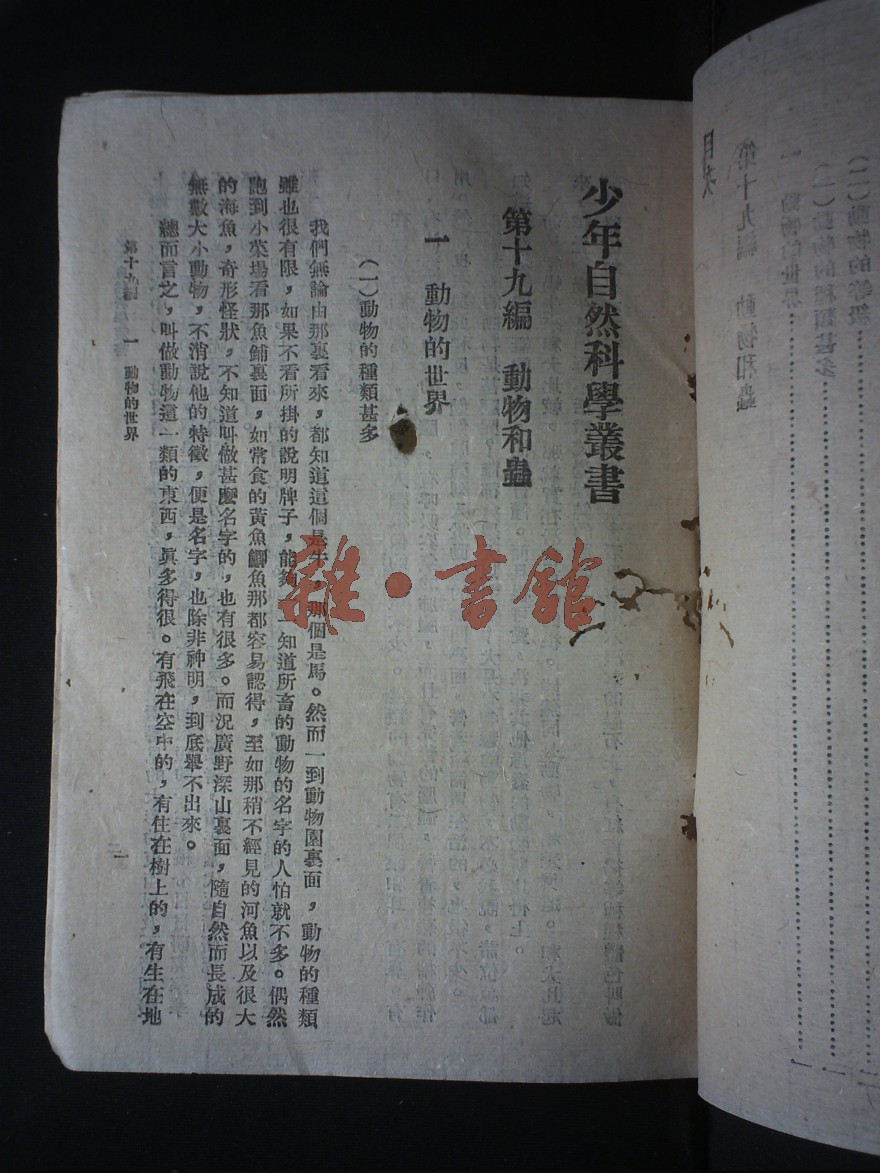 目次
第十九編 動物和蟲
一 動物的世界
(一)動物的種類甚多
(二)動物的等級
少年自然科學叢書
第十九編 動物和蟲
一 動物的世界
(一)動物的種類甚多
我們無論由那裏看來，都知道這個是牛，那個是馬。然而一到動物園裏面，動物的種類
雖也很有限，如果不看所掛的說明牌子，能夠一一知道所畜的動物的名字的人怕就不多。偶然
跑到小菜場看那魚鋪裏面，如常食的黃魚鯽魚那都容易認得，至如那稍不經見的河魚以及很大
的海魚，奇形怪狀，不知道叫做甚麼名字的，也有很多。而況廣野深山裏面，隨自然而長成的
無數大小動物，不消說他的特徵，便是名字，也除非神明，到底舉不出來。
總而言之，叫做動物這一類的東西，眞多得很。有飛在空中的，有住在樹上的，有生在地
第十九編 一 動物的世界
一
雜·書館